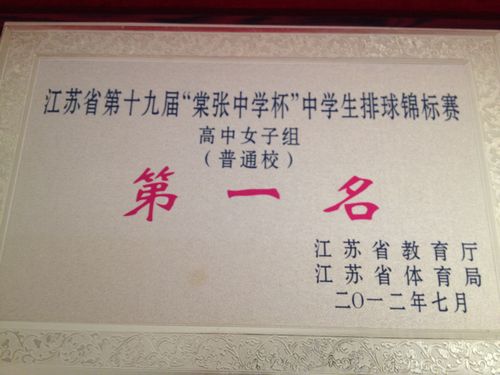 江苏省第十九届“棠张中学杯”中学生排球锦标赛
高中女子组
（普通校）
第一名
江苏省教育厅
江苏省体育局
二〇一二年七月